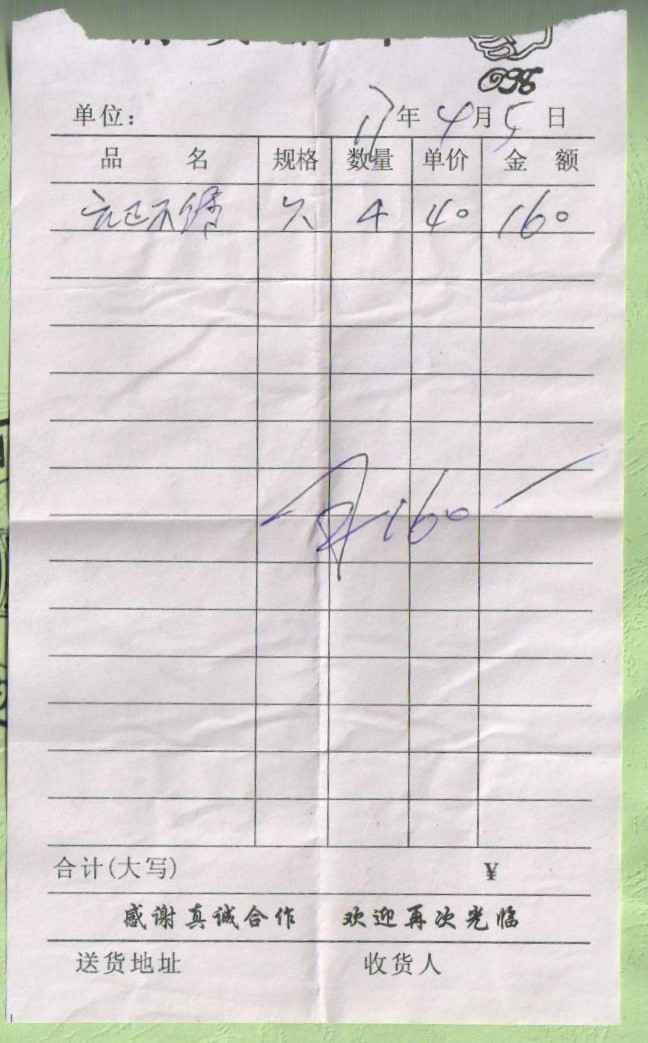 单位： 17年4月5日
品名 规格 数量 单价 金额
4 40 160
160
合计(大写) ¥
感谢真诚合作 欢迎再次光临
送货地址 收货人